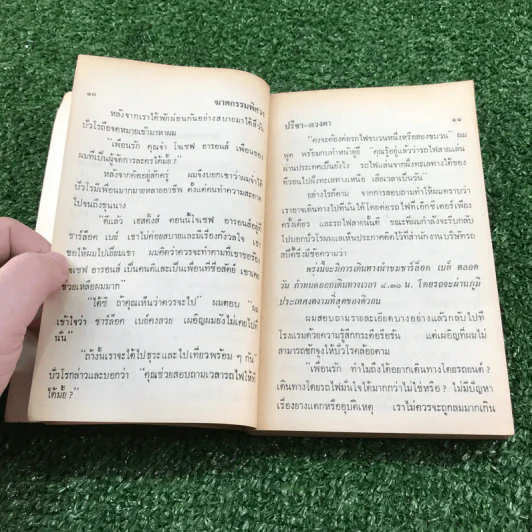 ๑๐
ฆาตกรรมพิศวง
หลังจากเราได้พักผ่อนกันอย่างสบายมาได้สี่วัน
บัวโรถือจดหมายเข้ามาหาผม
"เพื่อนรัก คุณจำ โจเซฟ อารอนส์ เพื่อนของ
ผมที่เป็นผู้จัดการละครได้มั้ย?"
หลังจากคิดอยู่สักครู่ ผมจึงบอกเขาว่าผมจำได้
บัวโรมีเพื่อนมากมายหลายอาชีพ ตั้งแต่คนทำความสะอาด
ไปจนถึงขุนนาง
"ดีแล้ว เฮสติ้งส์ ตอนนี้โจเซฟ อารอนส์อยู่ที่
ชาร์ล็อค เบย์ เขาไม่ค่อยสบายและมีเรื่องกังวลใจ เขา
ขอให้ผมไปเยี่ยมเขา ผมคิดว่าควรจะทำตามที่เขาขอร้อง
โจเซฟ อารอนส์ เป็นคนดีและเป็นเพื่อนที่ซื่อสัตย์ เขาเคย
ช่วยเหลือผมมาก"
"ได้ซิ ถ้าคุณเห็นว่าควรจะไป" ผมตอบ "ผม
เข้าใจว่า ชาร์ล็อค เบย์คงสวย เผอิญผมยังไม่เคยไปที่
นั่น"
"ถ้างั้นเราจะได้ไปธุระและไปเที่ยวพร้อม ๆ กัน"
บัวโรกล่าวและบอกว่า "คุณช่วยสอบถามเวลารถไฟให้ที
ได้มั้ย?"
๑๑
ปรีชา-ดวงตา
"คงจะต้องต่อรถไฟขบวนหนึ่งหรือสองขบวน" ผม
พูด พร้อมกับทำหน้ายู่ยี่ "คุณรู้อยู่แล้วว่ารถไฟสายแล่น
ผ่านประเทศเป็นยังไง รถไฟแล่นจากฝั่งทะเลทางใต้ของ
ดีวอนไปฝั่งทะเลทางเหนือ เสียเวลาเป็นวัน"
อย่างไรก็ตาม จากการสอบถามทำให้ผมทราบว่า
เราอาจเดินทางไปที่นั่นได้โดยต่อรถไฟที่เอ็กซีเตอร์เพียง
ครั้งเดียว และรถไฟสายนั้นดี ขณะที่ผมกำลังจะรีบกลับ
ไปบอกบัวโรผมแลเห็นประกาศติดไว้ที่สำนักงานบริษัทรถ
สปีดี้ซึ่งมีข้อความว่า
พรุ่งนี้จะมีการเดินทางนำชมชาร์ล็อค เบย์ ตลอด
วัน กำหนดออกเดินทางเวลา ๘.๓๐ น. โดยรถจะผ่านภูมิ
ประเทศงดงามที่สุดของดีวอน
ผมสอบถามรายละเอียดบางอย่างแล้วกลับไปที่
โรงแรมด้วยความรู้สึกกระตือรือร้น แต่เผอิญที่ผมไม่
สามารถชักจูงให้บัวโรคล้อยตาม
"เพื่อนรัก ทำไมถึงได้อยากเดินทางโดยรถยนต์?
เดินทางโดยรถไฟมั่นใจได้มากกว่าไม่ใช่หรือ? ไม่มีปัญหา
เรื่องยางแตกหรืออุบัติเหตุ เราไม่ควรจะถูกลมมากเกิน